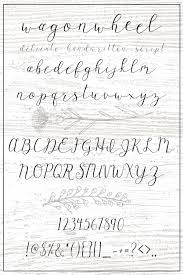 wagonwheel
delicate handwritten script
abcdefghijklm
nopqrstuvwxyz
ABCDEFGHIJKLM
NOPQRSTUVWXYZ
1234567890